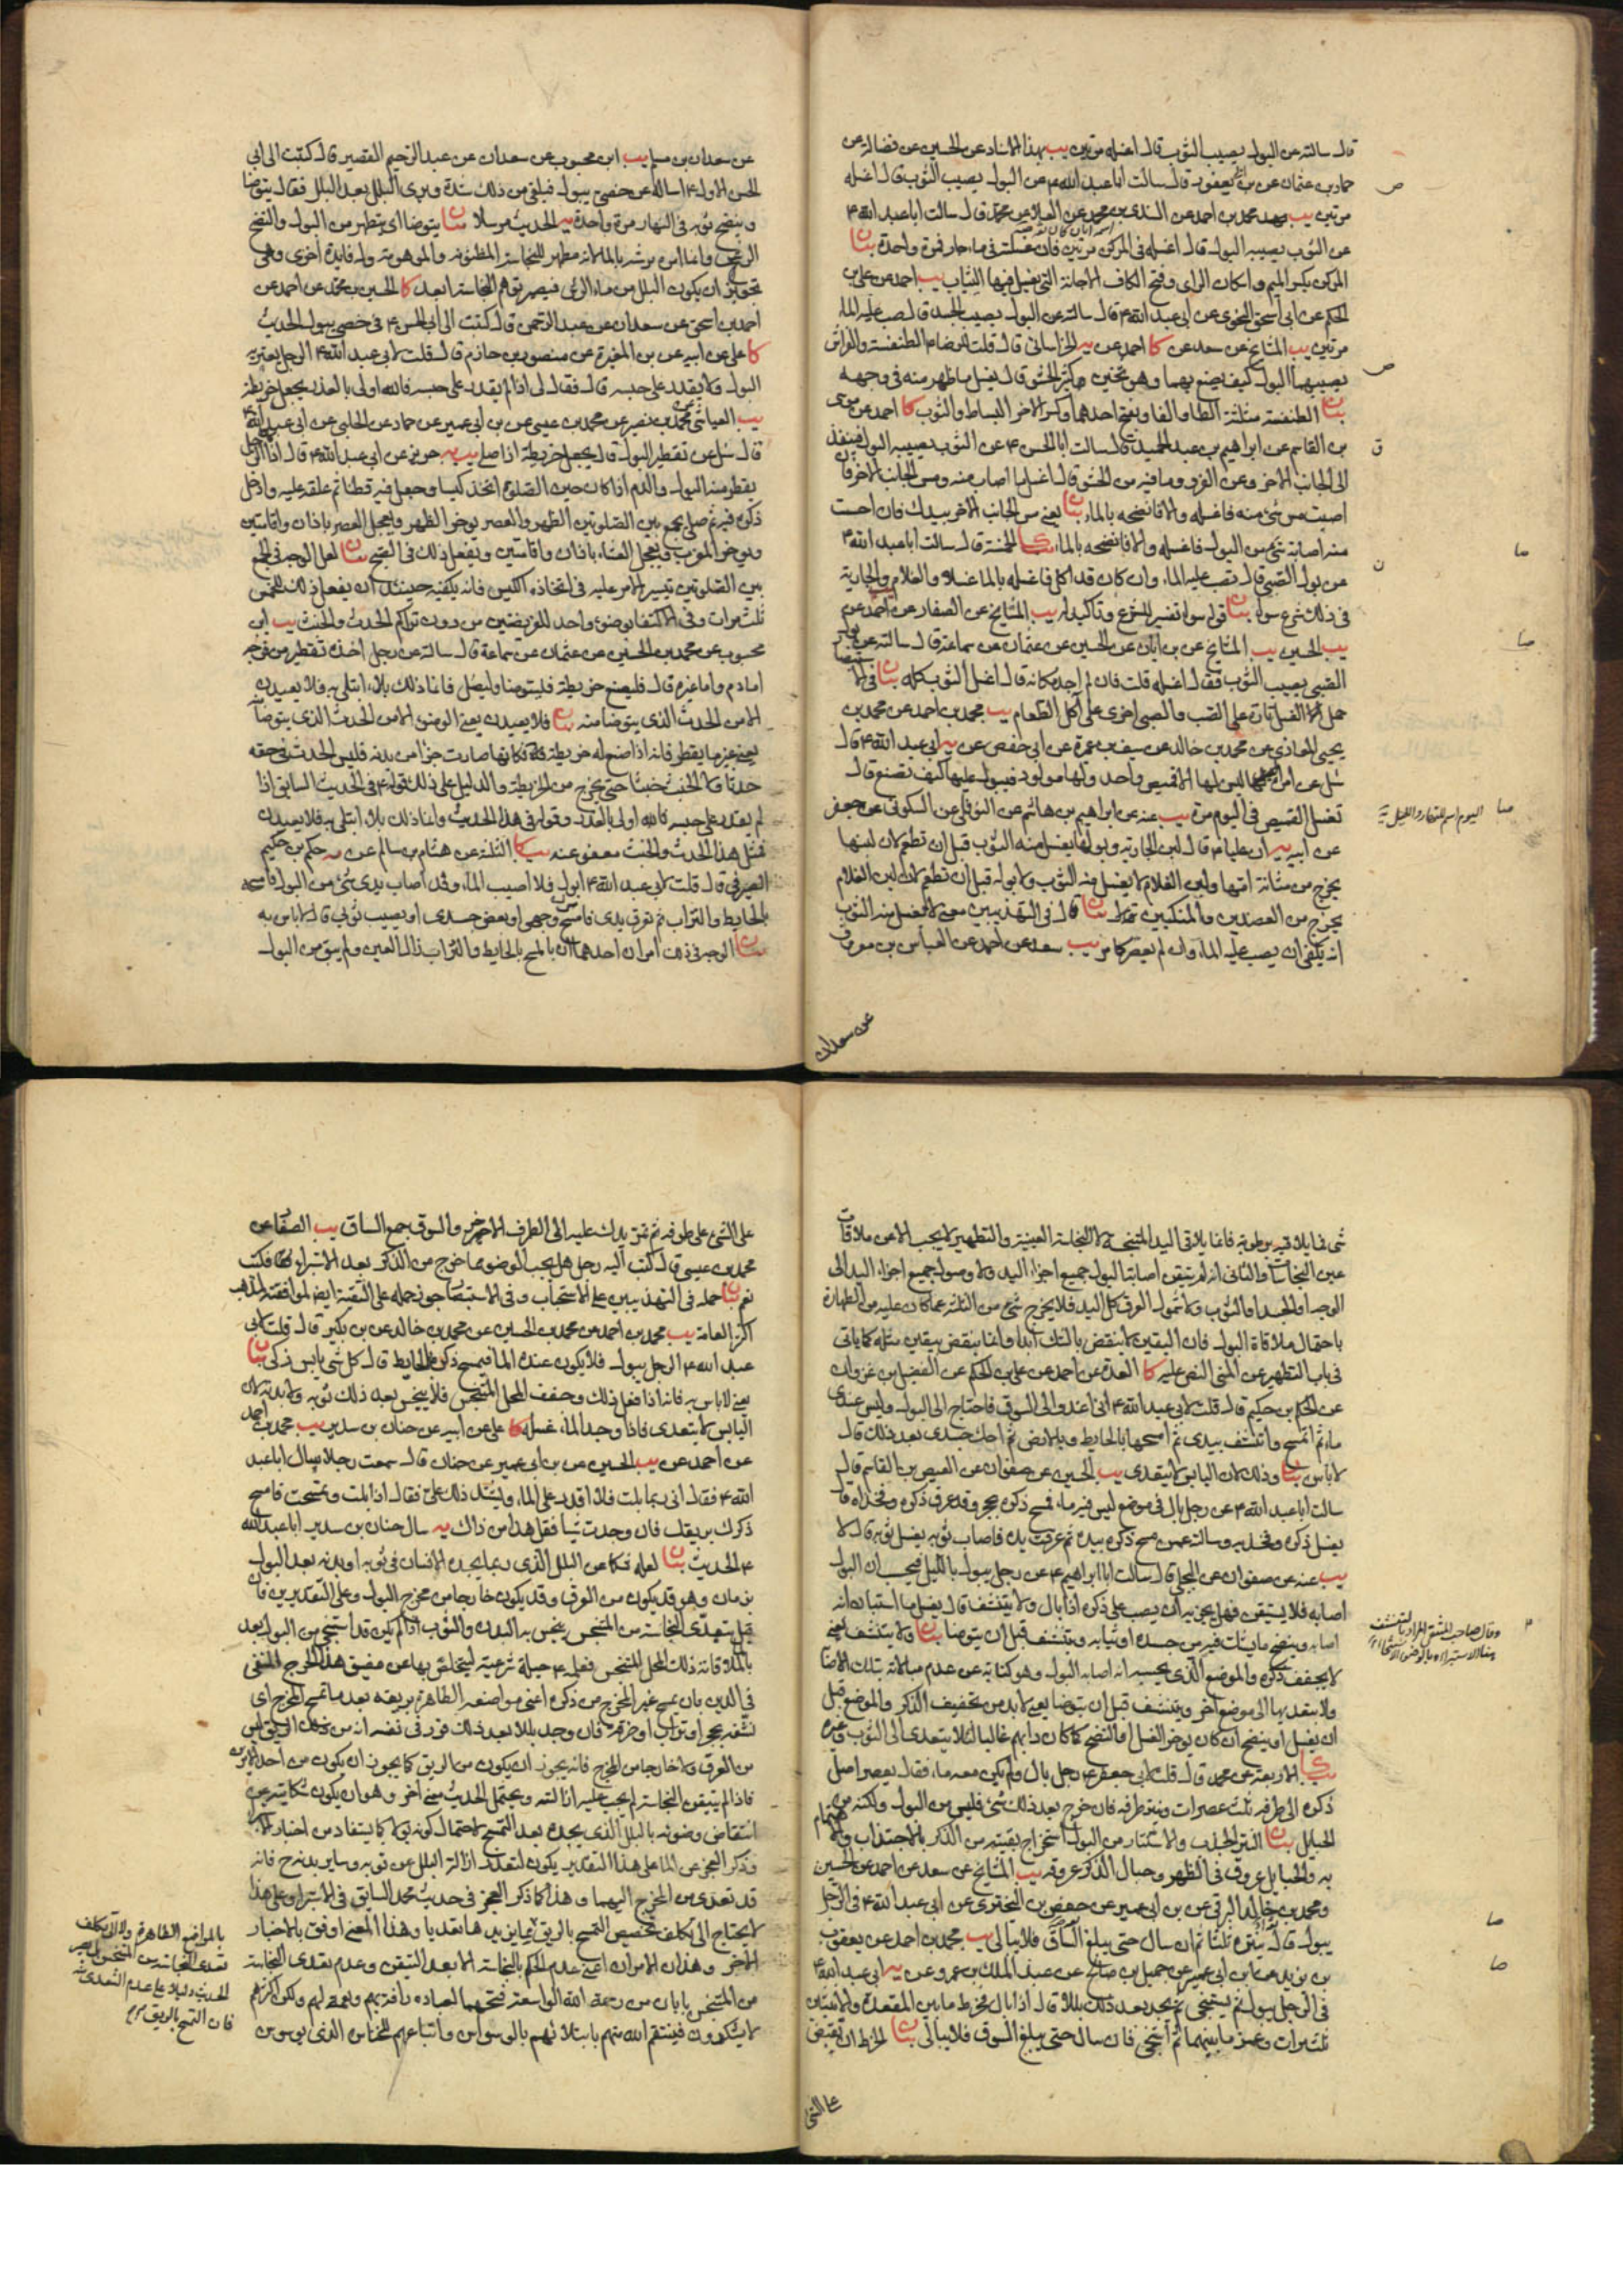 قال سالته عن البول يصيب الثوب قال اغسله مرتين يب بهذا الاسناد عن الحسين عن فضالة عن
حماد بن عثمان عن بن ابي يعفور قال سالت ابا عبد الله ع عن البول يصيب الثوب قال اغسله
مرتين يب محمد بن احمد عن السندي بن محمد عن العلا عن محمد قال سالت ابا عبد الله ع
عن الثوب يصيبه البول قال اغسله في المركن مرتين فان غسلته في ماء جار فمرة واحدة بيان
المركن بكسر الميم واسكان الراي وفتح الكاف الاجانة التي يغسل فيها الثياب يب احمد عن علي بن
الحكم عن ابي اسحق النحوي عن ابي عبد الله ع قال سالته عن البول يصيب الجسد قال صب عليه الماء
مرتين يب المشايخ عن سعد عن كا احمد عن الخراساني قال قلت للرضا ع الطنفسة والفراش
يصيبهما البول كيف يصنع بهما وهو ثخين كثير الحشو قال يغسل ما ظهر منه في وجهه
بيان الطنفسة مثلثة الطا والفا وبفتح احدهما وكسر الاخر البساط والثوب كا احمد عن موسى
بن القاسم عن ابراهيم بن عبد الحميد قال سالت ابا الحسن ع عن الثوب يصيبه البول فينفذ
الى الجانب الاخر وعن الفرو وما فيه من الحشو قال اغسل ما اصاب منه ومس الجانب الاخر فان
اصبت مس شئ منه فاغسله والا فانضحه بالماء بيان يعني مس الجانب الاخر بيدك فان احست
منه اصابة شئ من البول فاغسله والا فانضحه بالماء يب كا الخمسة قال سالت ابا عبد الله ع
عن بول الصبي قال تصب عليه الماء وان كان قد اكل فاغسله بالما غسلا والغلام والجارية
في ذلك شرع سواء بيان قوله سوا تفسير للشرع وتاكيد له يب المشايخ عن الصفار عن احمد عن
يب الحسين يب المشايخ عن بن ابان عن الحسين عن عثمان عن سماعة قال سالته عن بول
الصبي يصيب الثوب فقال اغسله قلت فان لم اجد مكانه قال اغسل الثوب كله بيان في
حمل الغسل تارة على الصب والصبي اخرى على آكل الطعام يب محمد بن احمد عن محمد بن
يحيى المعاذي عن محمد بن خالد عن سيف بن عميرة عن ابي حفص عن ابي عبد الله ع قال
سئل عن امراة ليس لها الا قميص واحد ولها مولود فيبول عليها كيف تصنع قال
تغسل القميص في اليوم مرة يب عنه عن ابراهيم بن هاشم عن النوفلي عن السكوني عن جعفر
عن ابيه ان عليا ع قال لبن الجارية وبولها يغسل منه الثوب قبل ان تطعم لان لبنها
يخرج من مثانة امها ولبن الغلام لا يغسل منه الثوب ولا بوله قبل ان تطعم لان لبن الغلام
يخرج من العضدين والمنكبين بيان قال في التهذيبين معنى لا يغسل منه الثوب
انه يكفي ان يصب عليه الماء وان لم يعصر كما مر يب سعد عن احمد عن العباس بن معروف
عن سعدان
اليوم اسم للنهار والليل
عن سعدان بن مسلم يب ابن محبوب عن سعدان عن عبد الرحيم القصير قال كتبت الى ابي
الحسن الاول ع اساله عن خصي يبول فيلقى من ذلك شدة ويرى البلل بعد البلل فقال يتوضا
وينضح ثوبه في النهار مرة واحدة الحديث مرسلا بيان يتوضا اي يتطهر من البول والنضح
الرش وانما امر برشه بالما لانه مطهر للنجاسة المظنونة والموهومة وله فايدة اخرى وهي
تجويز ان يكون البلل من ماء الرش فيصير توهم النجاسة ابعد كا الحسين بن محمد عن احمد عن
احمد بن اسحق عن سعدان عن عبد الرحمن قال كتبت الى ابي الحسن ع في خصي يبول الحديث
كا علي عن ابيه عن بن المغيرة عن منصور بن حازم قال قلت لابي عبد الله ع الرجل يعتريه
البول ولا يقدر على حبسه قال فقال لي اذا لم يقدر على حبسه فالله اولى بالعذر يجعل خريطة
يب العياشي عن محمد بن نصير عن محمد بن عيسى عن بن ابي عمير عن حماد عن الحلبي عن ابي عبد الله ع
قال سئل عن تقطير البول قال يجعل خريطة اذا صلى يب يه حريز عن ابي عبد الله ع قال اذا كان الرجل
يقطر منه البول والدم اذا كان حين الصلوة اتخذ كيسا وجعل فيه قطنا ثم علقه عليه وادخل
ذكره فيه ثم صلى يجمع بين الصلوتين الظهر والعصر يوخر الظهر ويعجل العصر باذان واقامتين
ويوخر المغرب ويعجل العشاء باذان واقامتين ويفعل ذلك في الصبح بيان لعل الوجه في الجمع
بين الصلوتين تيسير الامر عليه في اتخاذه الكيس فانه يكفيه حينئذ ان يفعل ذلك للخمس
ثلث مرات وفي الاكتفا بوضوء واحد للفريضتين من دون تراكم الحدث والخبث يب ابن
محبوب عن محمد بن الحسين عن عثمان عن سماعة قال سالته عن رجل اخذه تقطير من فرجه
اما دم واما غيره قال فليصنع خريطة فليتوضا وليصل فانما ذلك بلاء ابتلي به فلا يعيدن
الا من الحدث الذي يتوضا منه بيان فلا يعيدن يعني الوضوء الا من الحدث الذي يتوضا
يعني غير ما يقطر فانه اذا صنع له خريطة فكانها صارت جزءا من بدنه فليس الحدث في حقه
حدثا ولا الخبث خبثا حتى يخرج من الخريطة والدليل على ذلك قوله ع في الحديث السابق اذا
لم يقدر على حبسه فالله اولى بالعذر وقوله في هذا الحديث وانما ذلك بلاء ابتلي به فلا يعيدن
فمثل هذا الحدث والخبث معفو عنه يب كا الثلثة عن هشام بن سالم عن حكم بن حكيم
الصيرفي قال قلت لابي عبد الله ع ابول فلا اصيب الماء وقد اصاب يدي شئ من البول فامسحه
بالحايط والتراب ثم تعرق يدي فامسح وجهي او بعض جسدي او يصيب ثوبي قال لا باس به
بيان الوجه في ذلك امران احدهما ان بالمسح بالحايط والتراب زال العين ولم يبق من البول
شئ فما يلاقيه برطوبة فانما يلاقي اليد المتنجسة لا النجاسة العينية والتطهير لا يجب الا من ملاقات
عين النجاسات والثاني انه لم يتيقن اصابة البول جميع اجزاء اليد ولا وصول جميع اجزاء اليد الى
الوجه او الجسد او الثوب ولا شمول العرق كل اليد فلا يخرج شئ من الثلثة عما كان عليه من الطهارة
باحتمال ملاقاة البول فان اليقين لا ينقض بالشك ابدا وانما ينقض بيقين مثله كما ياتي
في باب التطهير من المني النص عليه كا العدة عن احمد عن علي بن الحكم عن الفضيل بن غزوان
عن الحكم بن حكيم قال قلت لابي عبد الله ع اني اغدو الى السوق فاحتاج الى البول وليس عندي
ماء ثم اتمسح واتنشف بيدي ثم امسحها بالحايط وبالارض ثم احك جسدي بعد ذلك قال
لا باس بيان وذلك لان اليابس لا يتعدى يب الحسين عن صفوان عن العيص بن القاسم قال
سالت ابا عبد الله ع عن رجل بال في موضع ليس فيه ماء فمسح ذكره بحجر وقد عرق ذكره وفخذاه قال
يغسل ذكره وفخذيه وسالته عمن مسح ذكره بيده ثم عرقت يده فاصاب ثوبه يغسل ثوبه قال لا
يب عنه عن صفوان عن البجلي قال سالت ابا ابراهيم ع عن رجل يبول بالليل فيحسب ان البول
اصابه فلا يستيقن فهل يجزيه ان يصب على ذكره اذا بال ولا يتنشف قال يغسل ما استبان انه
اصابه وينضح ما يشك فيه من جسده او ثيابه ويتنشف قبل ان يتوضا بيان ولا يتنشف يعني
لا يجفف ذكره والموضع الذي يحسب انه اصابه البول وهو كناية عن عدم مبالاته بتلك الاصابة
ولا بتعديها الى موضع اخر ويتنشف قبل ان يتوضا يعني لابد من تجفيف الذكر والموضع قبل
ان يغسل او ينضح ان كان يوخر الغسل او النضح كما كان دابهم غالبا لئلا يتعدى الى الثوب وغيره
يب كا الاربعة عن محمد قال قلت لابي جعفر ع رجل بال ولم يكن معه ماء فقال يعصر اصل
ذكره الى طرفه ثلث عصرات وينتر طرفه فان خرج بعد ذلك شئ فليس من البول ولكنه من
الحبايل بيان النتر الجذب والاستنتار من البول استخراج بقيته من الذكر بالاجتذاب والاهتمام
به والحبايل عروق في الظهر وحبال الذكر عروقه يب المشايخ عن سعد عن احمد عن الحسين
ومحمد بن خالد البرقي عن بن ابي عمير عن حفص بن البختري عن ابي عبد الله ع في الرجل
يبول قال ينتره ثلثا ثم ان سال حتى يبلغ الساق فلا يبالي يب محمد بن احمد عن يعقوب
بن يزيد عن ابن ابي عمير عن جميل بن صالح عن عبد الملك بن عمرو عن ابي عبد الله ع
في الرجل يبول ثم يستنجي ثم يجد بعد ذلك بللا قال اذا بال فخرط ما بين المقعدة والانثيين
ثلث مرات وغمز ما بينهما ثم استنجى فان سال حتى يبلغ السوق فلا يبالي بيان الخرط ان تقبض
على الشئ
على الشئ على طرفه ثم تمر يدك عليه الى الطرف الاخر والسوق جمع الساق يب الصفار عن
محمد بن عيسى قال كتب اليه رجل هل يجب الوضوء مما خرج من الذكر بعد الاستبراء فكتب
نعم بيان حمله في التهذيبين على الاستحباب وفي الاستبصار جوز حمله على التقية ايضا لموافقته لمذهب
اكثر العامة يب محمد بن احمد عن محمد بن الحسين عن محمد بن خالد عن بن بكير قال قلت لابي
عبد الله ع الرجل يبول فلا يكون عنده الما فيمسح ذكره بالحايط قال كل شئ يابس ذكي بيان
يعني لا باس به فانه اذا فعل ذلك وجفف المحل المتنجس فلا ينجس بعد ذلك ثوبه ولا بدنه لان
اليابس لا يتعدى فاذا وجد الماء غسله كا علي عن ابيه عن حنان بن سدير يب محمد بن احمد
عن احمد عن يب الحسين عن بن ابي عمير عن حنان قال سمعت رجلا سال ابا عبد
الله ع فقال اني ربما بلت فلا اقدر على الماء ويشتد ذلك علي فقال اذا بلت وتمسحت فامسح
ذكرك بريقك فان وجدت شيئا فقل هذا من ذاك يه سال حنان بن سدير ابا عبد الله
ع الحديث بيان لعله شكا عن البلل الذي ربما يجده الانسان في ثوبه او بدنه بعد البول
بزمان وهو قد يكون من العرق وقد يكون خارجا من مخرج البول وعلى التقديرين فان
قيل بتعدي النجاسة من المتنجس ينجس به البدن والثوب اذا لم يكن قد استنجى من البول بعد
بالما لملاقاته ذلك المحل المتنجس فعلمه ع حيلة شرعية ليتخلص بها عن مضيق هذا الحرج المنفي
في الدين بان يمسح غير المخرج من ذكره اعني مواضعه الطاهرة بريقه بعد ما تمسح المخرج اي
نشفه بحجر او تراب او خرقة فان وجد بللا بعد ذلك قرر في نفسه انه من ذلك الريق ليس
من العرق ولا خارجا من المخرج فانه يجوز ان يكون من الريق كما يجوز ان يكون من احد الامرين
فاذا لم يتيقن النجاسة لم يجب عليه ازالته ويحتمل الحديث معنى اخر وهو ان يكون شكايته عن
انتقاض وضوئه بالبلل الذي يجده بعد التمسح لاحتمال كونه بولا كما يستفاد من اخبار
وذكر العجز عن الما على هذا التقدير يكون لتعذر ازالة البلل عن ثوبه وساير بدنه ح فانه
قد تعدى من المخرج اليهما وهذا كما ذكر العجز في حديث محمد السابق في الاستبراء وعلى هذا
لا يحتاج الى تكلف تخصيص التمسح بالريق وهذا المعنى اوفق بالاخبار
الاخر وهذان الامران اعني عدم الحكم بالنجاسة الا بعد التيقن وعدم تعدى النجاسة
من المتنجس بابان من رحمة الله الواسعة فتحهما لعباده رأفة بهم ونعمة لهم ولكن اكثرهم
لا يشكرون فينتقم الله منهم بابتلائهم بالوسواس واتباعهم للخناس الذي يوسوس